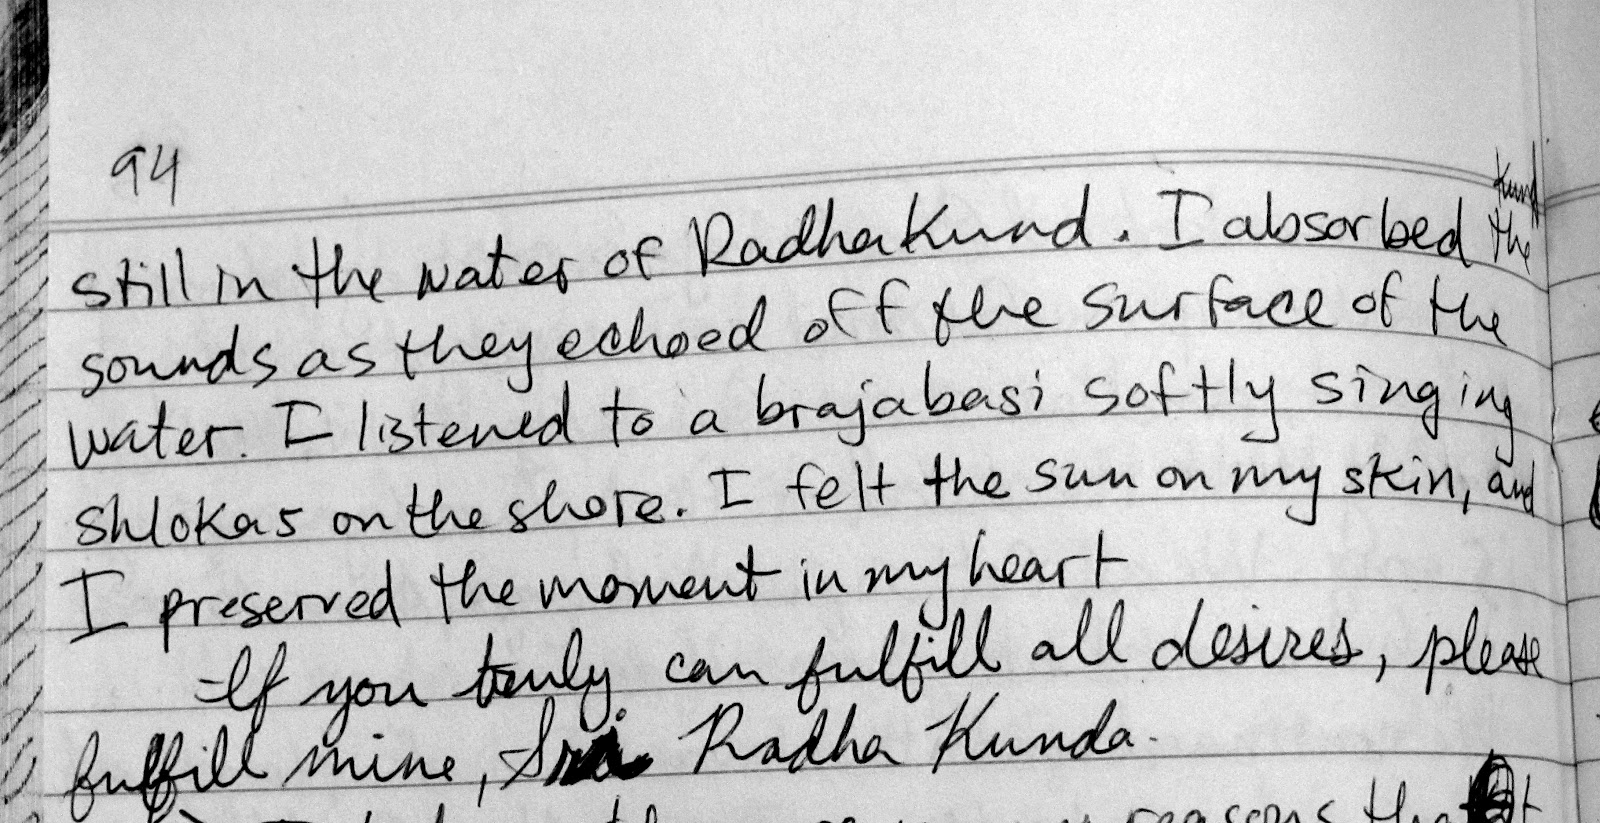 94
still in the water of Radhakund. I absorbed the
sounds as they echoed off the surface of the
water. I listened to a brajabasi softly singing
shlokas on the shore. I felt the sun on my skin, and
I preserved the moment in my heart
If you truly can fulfill all desires, please
fulfill mine, Sri Radha Kunda.
reasons that